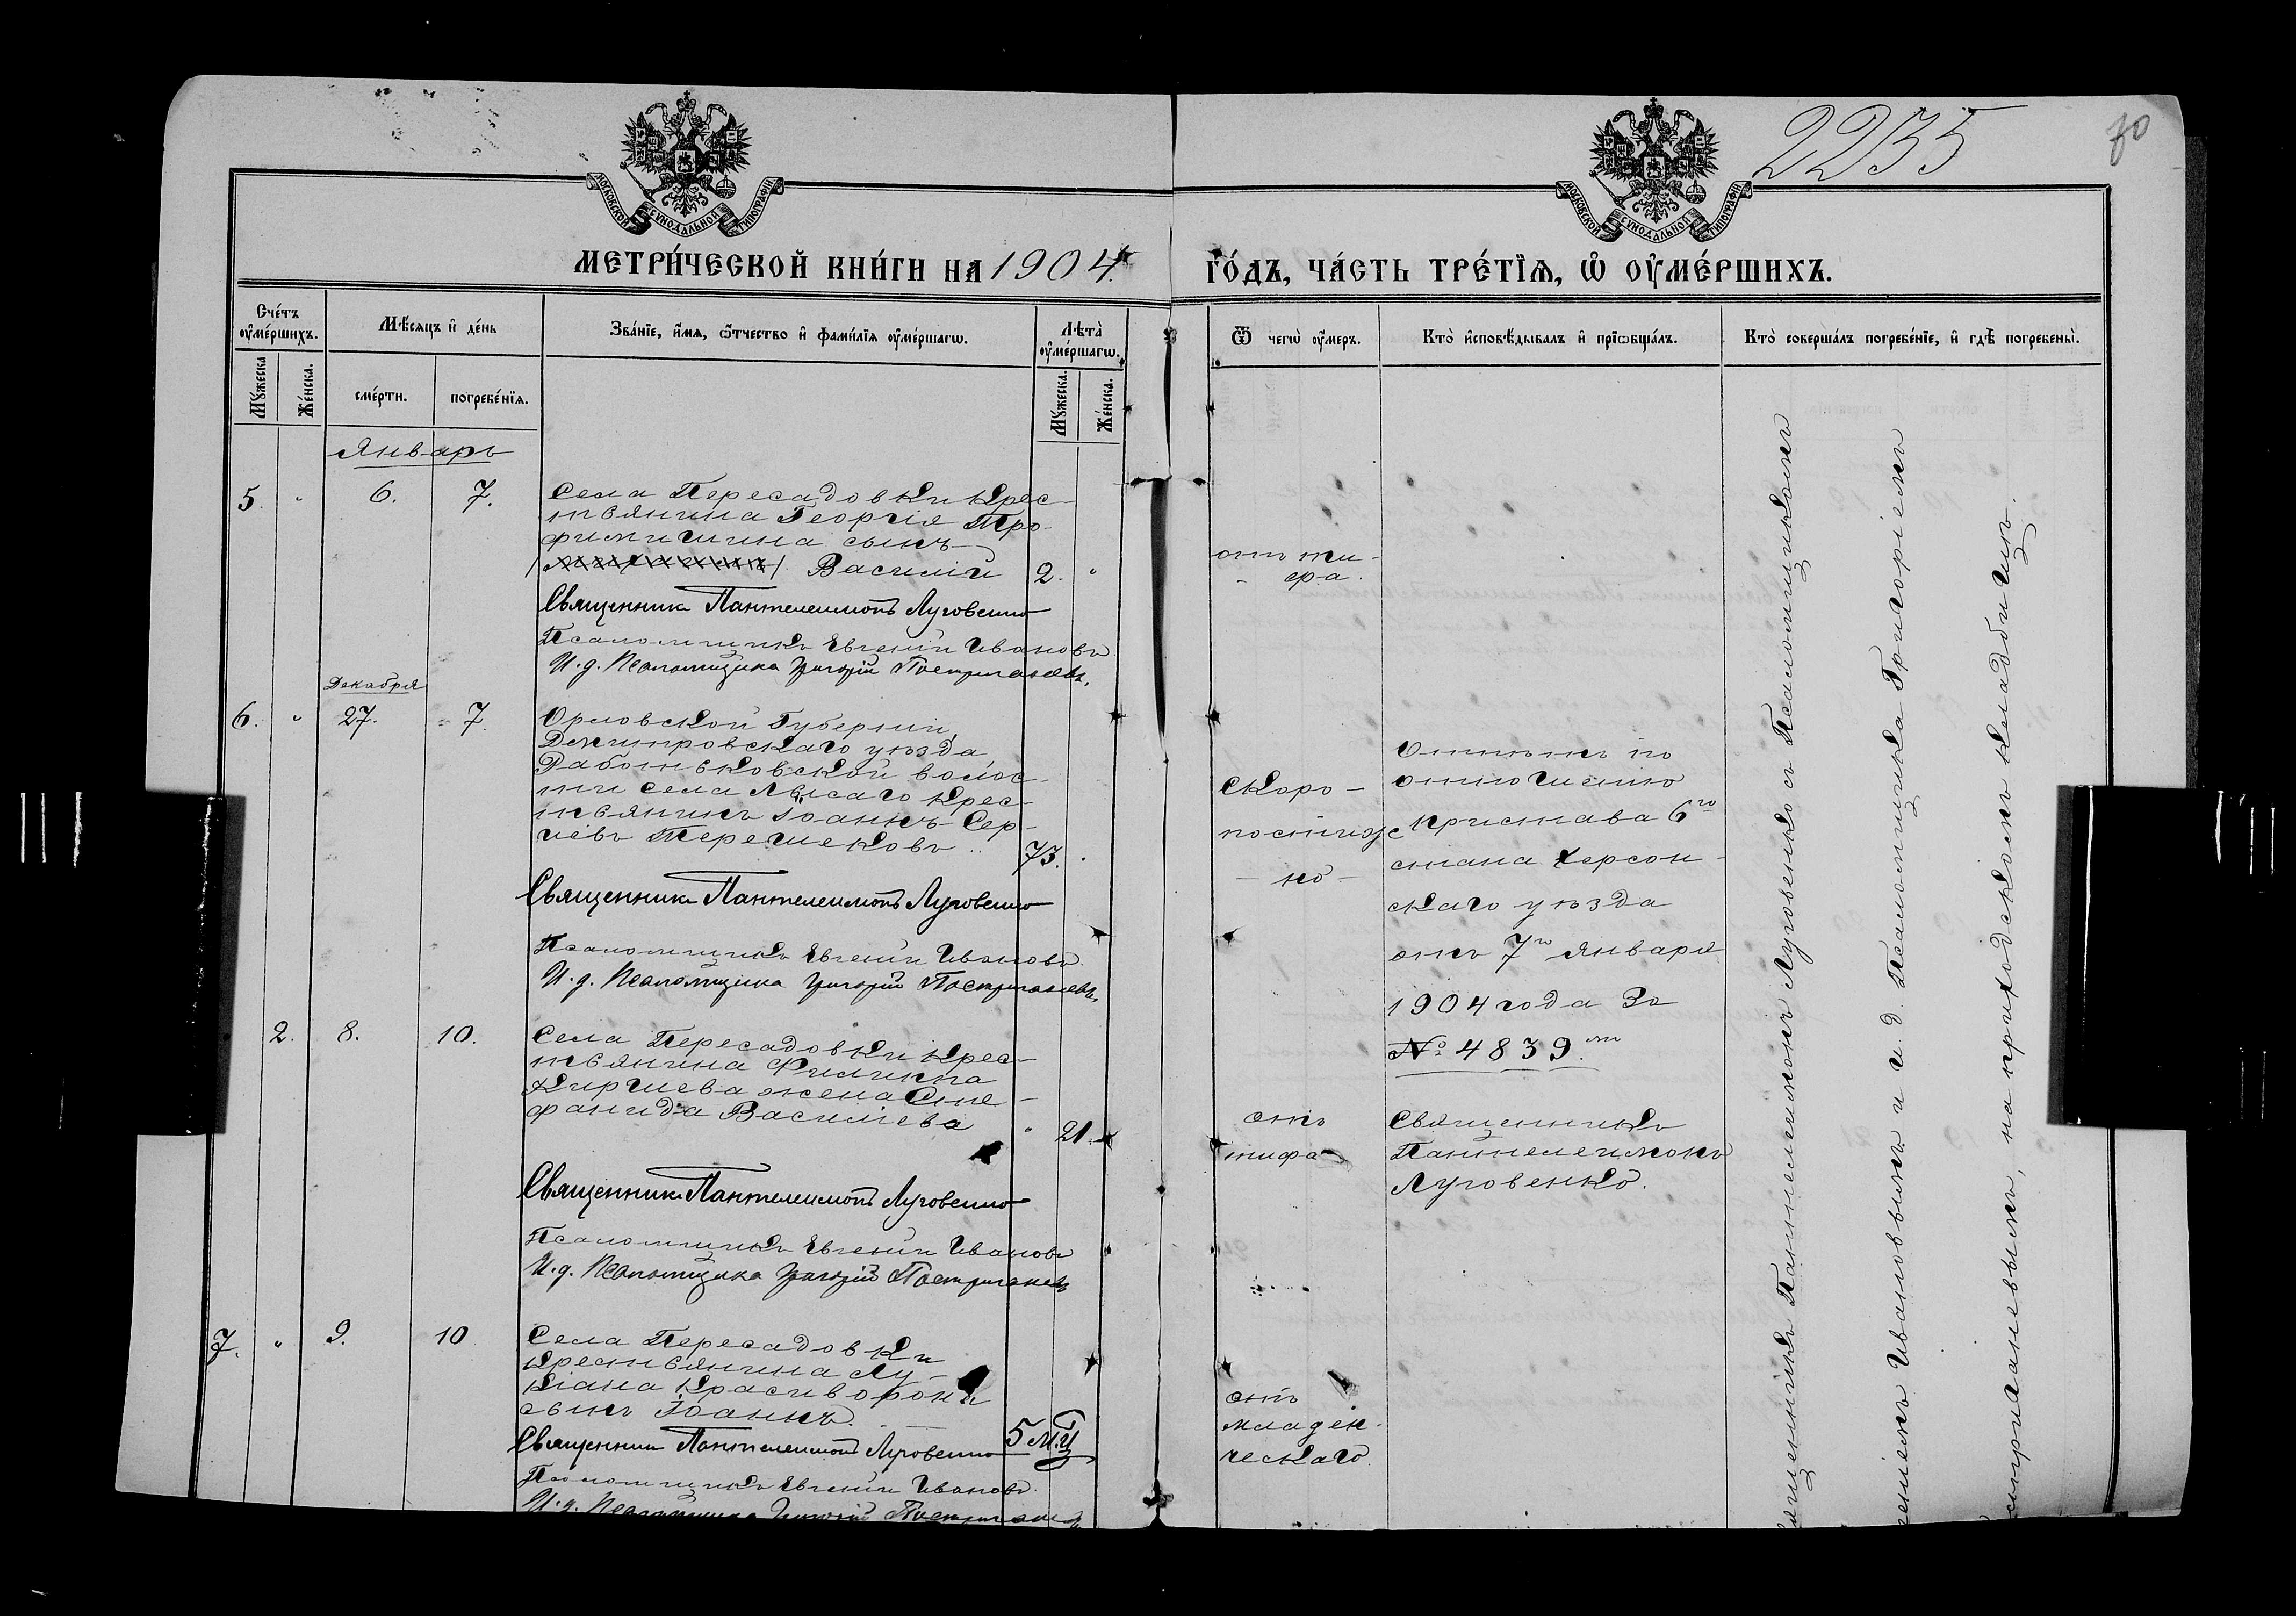 2235
70
МОСКОВСКОЙ СѴНОДАЛЬНОЙ ТИПОГРАФІИ
МОСКОВСКОЙ СѴНОДАЛЬНОЙ ТИПОГРАФІИ
МЕТРИ́ЧЕСКОЙ КНИ́ГИ НА 1904.
ГО́ДЪ, ЧА́СТЬ ТРЕ́ТЇѦ, Ѡ҆ ОУ҆МЕ́РШИХЪ.
Сче́тъ оу҆ме́ршихъ.
Мꙋ́жеска
Же́нска.
Мѣ́сяцъ и҆ де́нь
сме́рти.
погребе́нїя.
Зва́нїе, и҆́мя, ѻ҆́тчество и҆ фами́лїя оу҆ме́ршагѡ.
Лѣ̀та оу҆ме́ршагѡ.
Мꙋ́жеска.
Же́нска.
Ѿ чегѡ̀ оу҆́меръ.
Кто̀ и҆сповѣ́дывалъ и҆ прїѡбща́лъ.
Кто̀ соверша́лъ погребе́нїе, и҆ гдѣ̀ погребены̀.
Январь
5. " 6. 7.
Села Пересадовки крес-
тьянина Георгія Тро-
фимишина сынъ
Василій 2. "
отъ ти-
фа.
Священникъ Пантелеимонъ Луговенко
Псаломщикъ Евгеній Ивановъ
И. д. Псаломщика Григорій
Декабря
6. " 27. 7
Орловской Губерніи,
Дмитровскаго уѣзда
волос-
ти села Лысаго крес-
тьянинъ Іоаннъ Сер-
гіевъ Терешековъ 73.
Скоро-
постиж
но
Отпѣтъ по
отношенію
пристава 6го
стана Херсон-
скаго уѣзда
отъ 7го Января
1904 года За
№ 4839.мъ
Священникъ Пантелеимонъ Луговенко
Псаломщикъ Евгеній Ивановъ
И. д. Псаломщика Григорій
2. 8. 10.
Села Пересадовки крес-
тьянина Филиппа
Киршева жена Сте-
фанида Васильева " 21.
отъ
тифа
Священникъ
Пантелеимонъ
Луговенко.
Священникъ Пантелеимонъ Луговенко
Псаломщикъ Евгеній Ивановъ
И. д. Псаломщика Григорій
7. " 9. 10
Села Пересадовки
крестьянина Лу-
кіана
сынъ Іоаннъ. 5 м.ц
отъ
младен-
ческаго
Священникъ Пантелеимонъ Луговенко
Псаломщикъ Евгеній Ивановъ
И. д. Псаломщика Григорій
Священникъ Пантелеимонъ Луговенко съ Псаломщикомъ
Ивановымъ и И. д. Псаломщика Григоріемъ
на приходскомъ кладбищѣ.